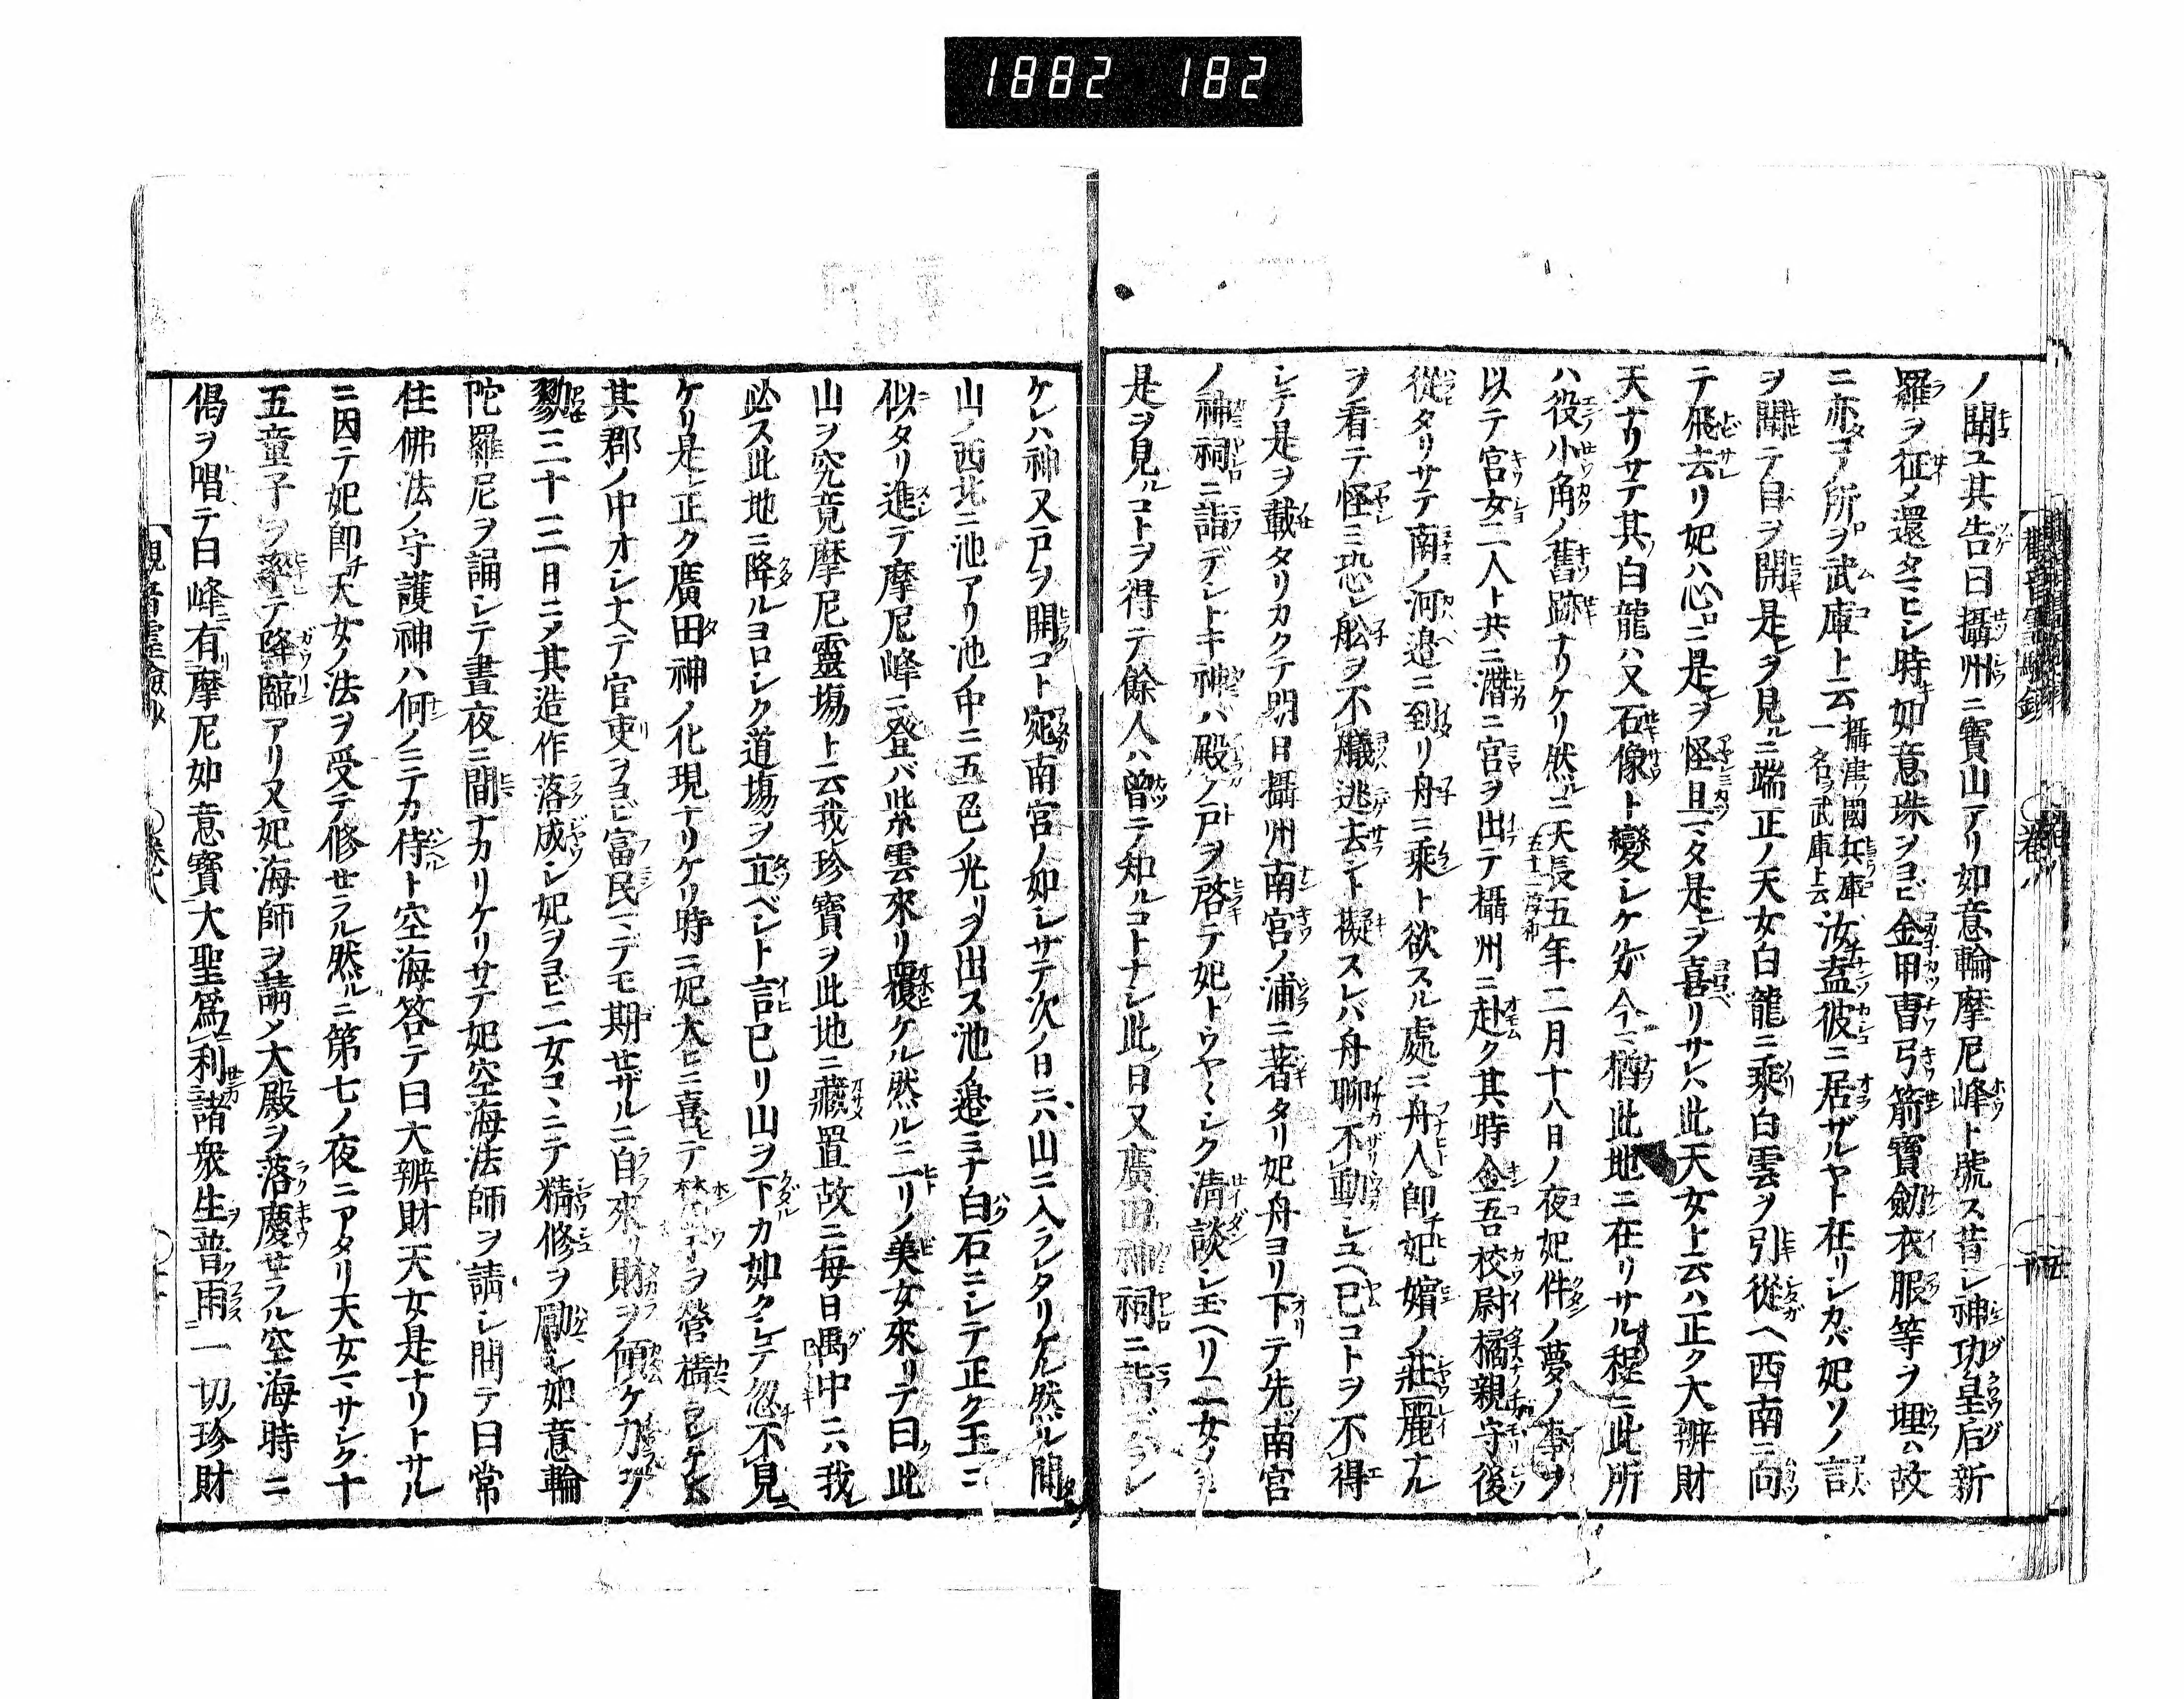 1882 182
ノ聞ユ其告曰攝州ニ寶山アリ如意輪摩尼峰ト號ス昔シ神功皇后新
羅ヲ征メ還タマヒシ時如意珠ヲヨビ金甲冑弓箭寶劔衣服等ヲ埋ム故
ニ亦コノ所ヲ武庫ト云攝津ノ國兵庫一名ヲ武庫ト云汝盍彼ニ居ザルヤト在リシカバ妃ソノ言
ヲ聞テ目ヲ開キ是ヲ見ルニ端正ノ天女白龍ニ乘白雲ヲ引從ヘ西南ニ向
テ飛去リ妃ハ心ニ是ヲ怪且マタ是ヲ喜リサレハ此天女ト云ハ正ク大辨財
天ナリサテ其白龍ハ又石像ト變シケルガ今ニ猶此地ニ在リサル程ニ此所
ハ役小角ノ舊跡ナリケリ然ルニ天長五年二月十八日ノ夜妃件ノ夢ノ事ヲ
以テ宮女二人ト共ニ潛ニ宮ヲ出テ攝州ニ赴ク其時金吾校尉橘親守後
從タリサテ南ノ河邉ニ到リ舟ニ乘ト欲スル處ニ舟人即妃嬪ノ莊麗ナル
ヲ看テ怪ミ恐レ舩ヲ不艤逃去ント擬スレバ舟聊不動シユヘ已コトヲ不得
シテ是ヲ載タリカクテ明日攝州南宮ノ浦ニ著タリ妃舟ヨリ下テ先南宮
ノ神祠ニ詣デシトキ神ハ殿ノ戸ヲ啓テ妃トウヤ〱シク清談シ玉ヘリ二女ノミ
是ヲ見ルコトヲ得テ餘人ハ曽テ知ルコトナシ此ノ日又廣田神祠ニ詣デラレ
ケレハ神又戸ヲ開コト宛南宮ノ如シサテ次ノ日ニハ山ニ入ラレタリケル然ル間
山ノ西北ニ池アリ池ノ中ニ五色ノ光リヲ出ス池ノ邉ミナ白石ニシテ正ク玉ニ
似タリ進テ摩尼峰ニ登バ紫雲來リ覆ケル然ルニ一リノ美女來リテ曰ク此
山ヲ究竟摩尼靈場ト云我珍寶ヲ此地ニ藏置故ニ毎日禺中ニハ我レ
必ス此地ニ降ルヨロシク道場ヲ立ベシト言已リ山ヲ下カ如クシテ忽不見
ケリ是レ正ク廣田神ノ化現ナリケリ時ニ妃大ヒニ喜テ梵宇ヲ營搆シケルニ
其郡ノ中オシナテ官吏ヲヨビ富民マデモ期セザルニ自來リ財ヲ傾ケ力ヲ
勠三十三日ニソ其造作落成シ妃ヲヨビ二女コヽニテ精修ヲ勵シ如意輪
陀羅尼ヲ誦シテ晝夜ニ間ナカリケリサテ妃空海法師ヲ請シ問テ曰常
住佛法ノ守護神ハ何ノニテカ侍ト空海答テ曰大辨財天女是ナリトサル
ニ因テ妃即天女ノ法ヲ受テ修セラル然ルニ第七ノ夜ニアタリ天女マサシク十
五童子ヲ率テ降臨アリ又妃海師ヲ請メ大殿ヲ落慶セラル空海時ニ
偈ヲ唱テ曰峰有摩尼如意寶大聖爲利諸衆生普雨一切珍財